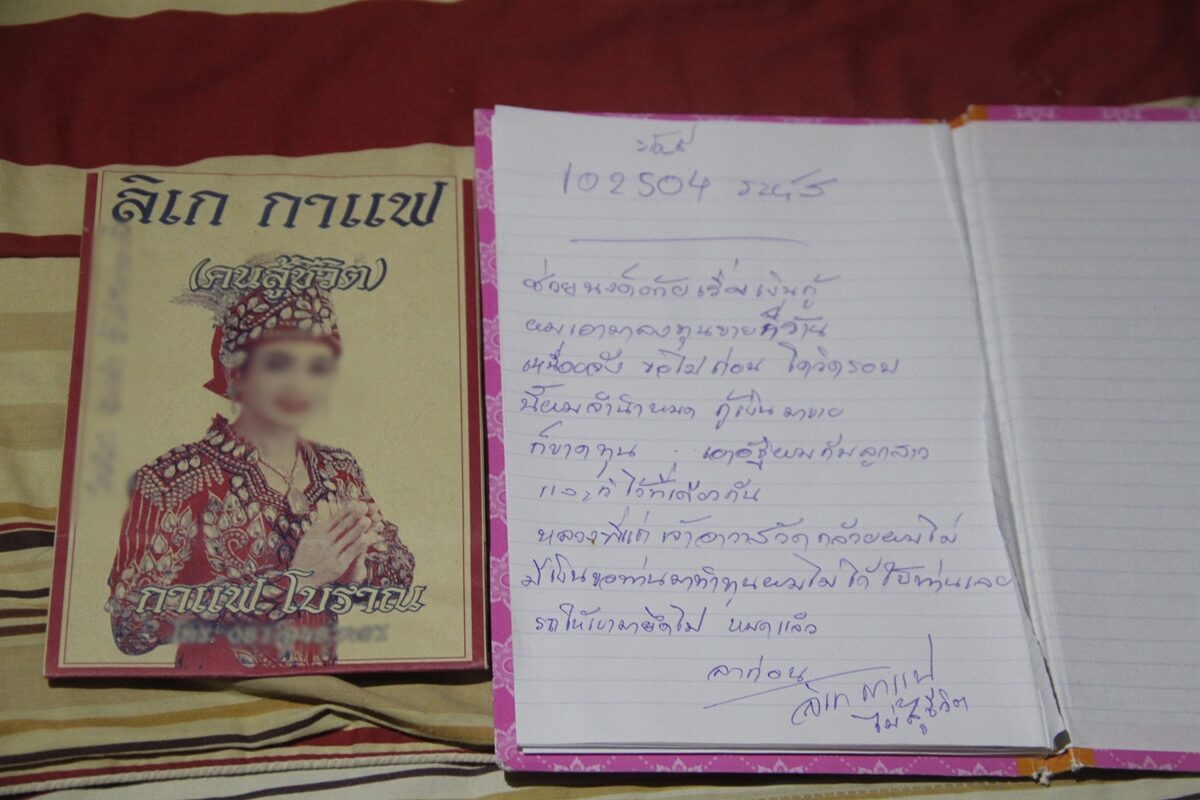 ลิเก กาแฟ
(คนสู้ชีวิต)
กาแฟ โบราณ
102504 รหัส
ช่วยงดด้วยเรื่องเงินกู้
ผมเอามาลงทุนขายที่ร้าน
เหนื่อยจัง ขอไปก่อน โควิดรอบ
นี้ผมลำบากหมด กู้เงินมาขาย
ก็ขาดทุน เอาอัฐิผมกับลูกสาว
และ ไว้ที่เดียวกัน
หลวงพี่แก่ เจ้าอาวาสวัดกล้วยผมไม่
มีเงินขอท่านมาทำทุนผมไม่ได้ใช้ท่านเลย
รถให้เขามายึดไป หมดแล้ว
ลาก่อน
ลิเก กาแฟ
ไม่สู้ชีวิต